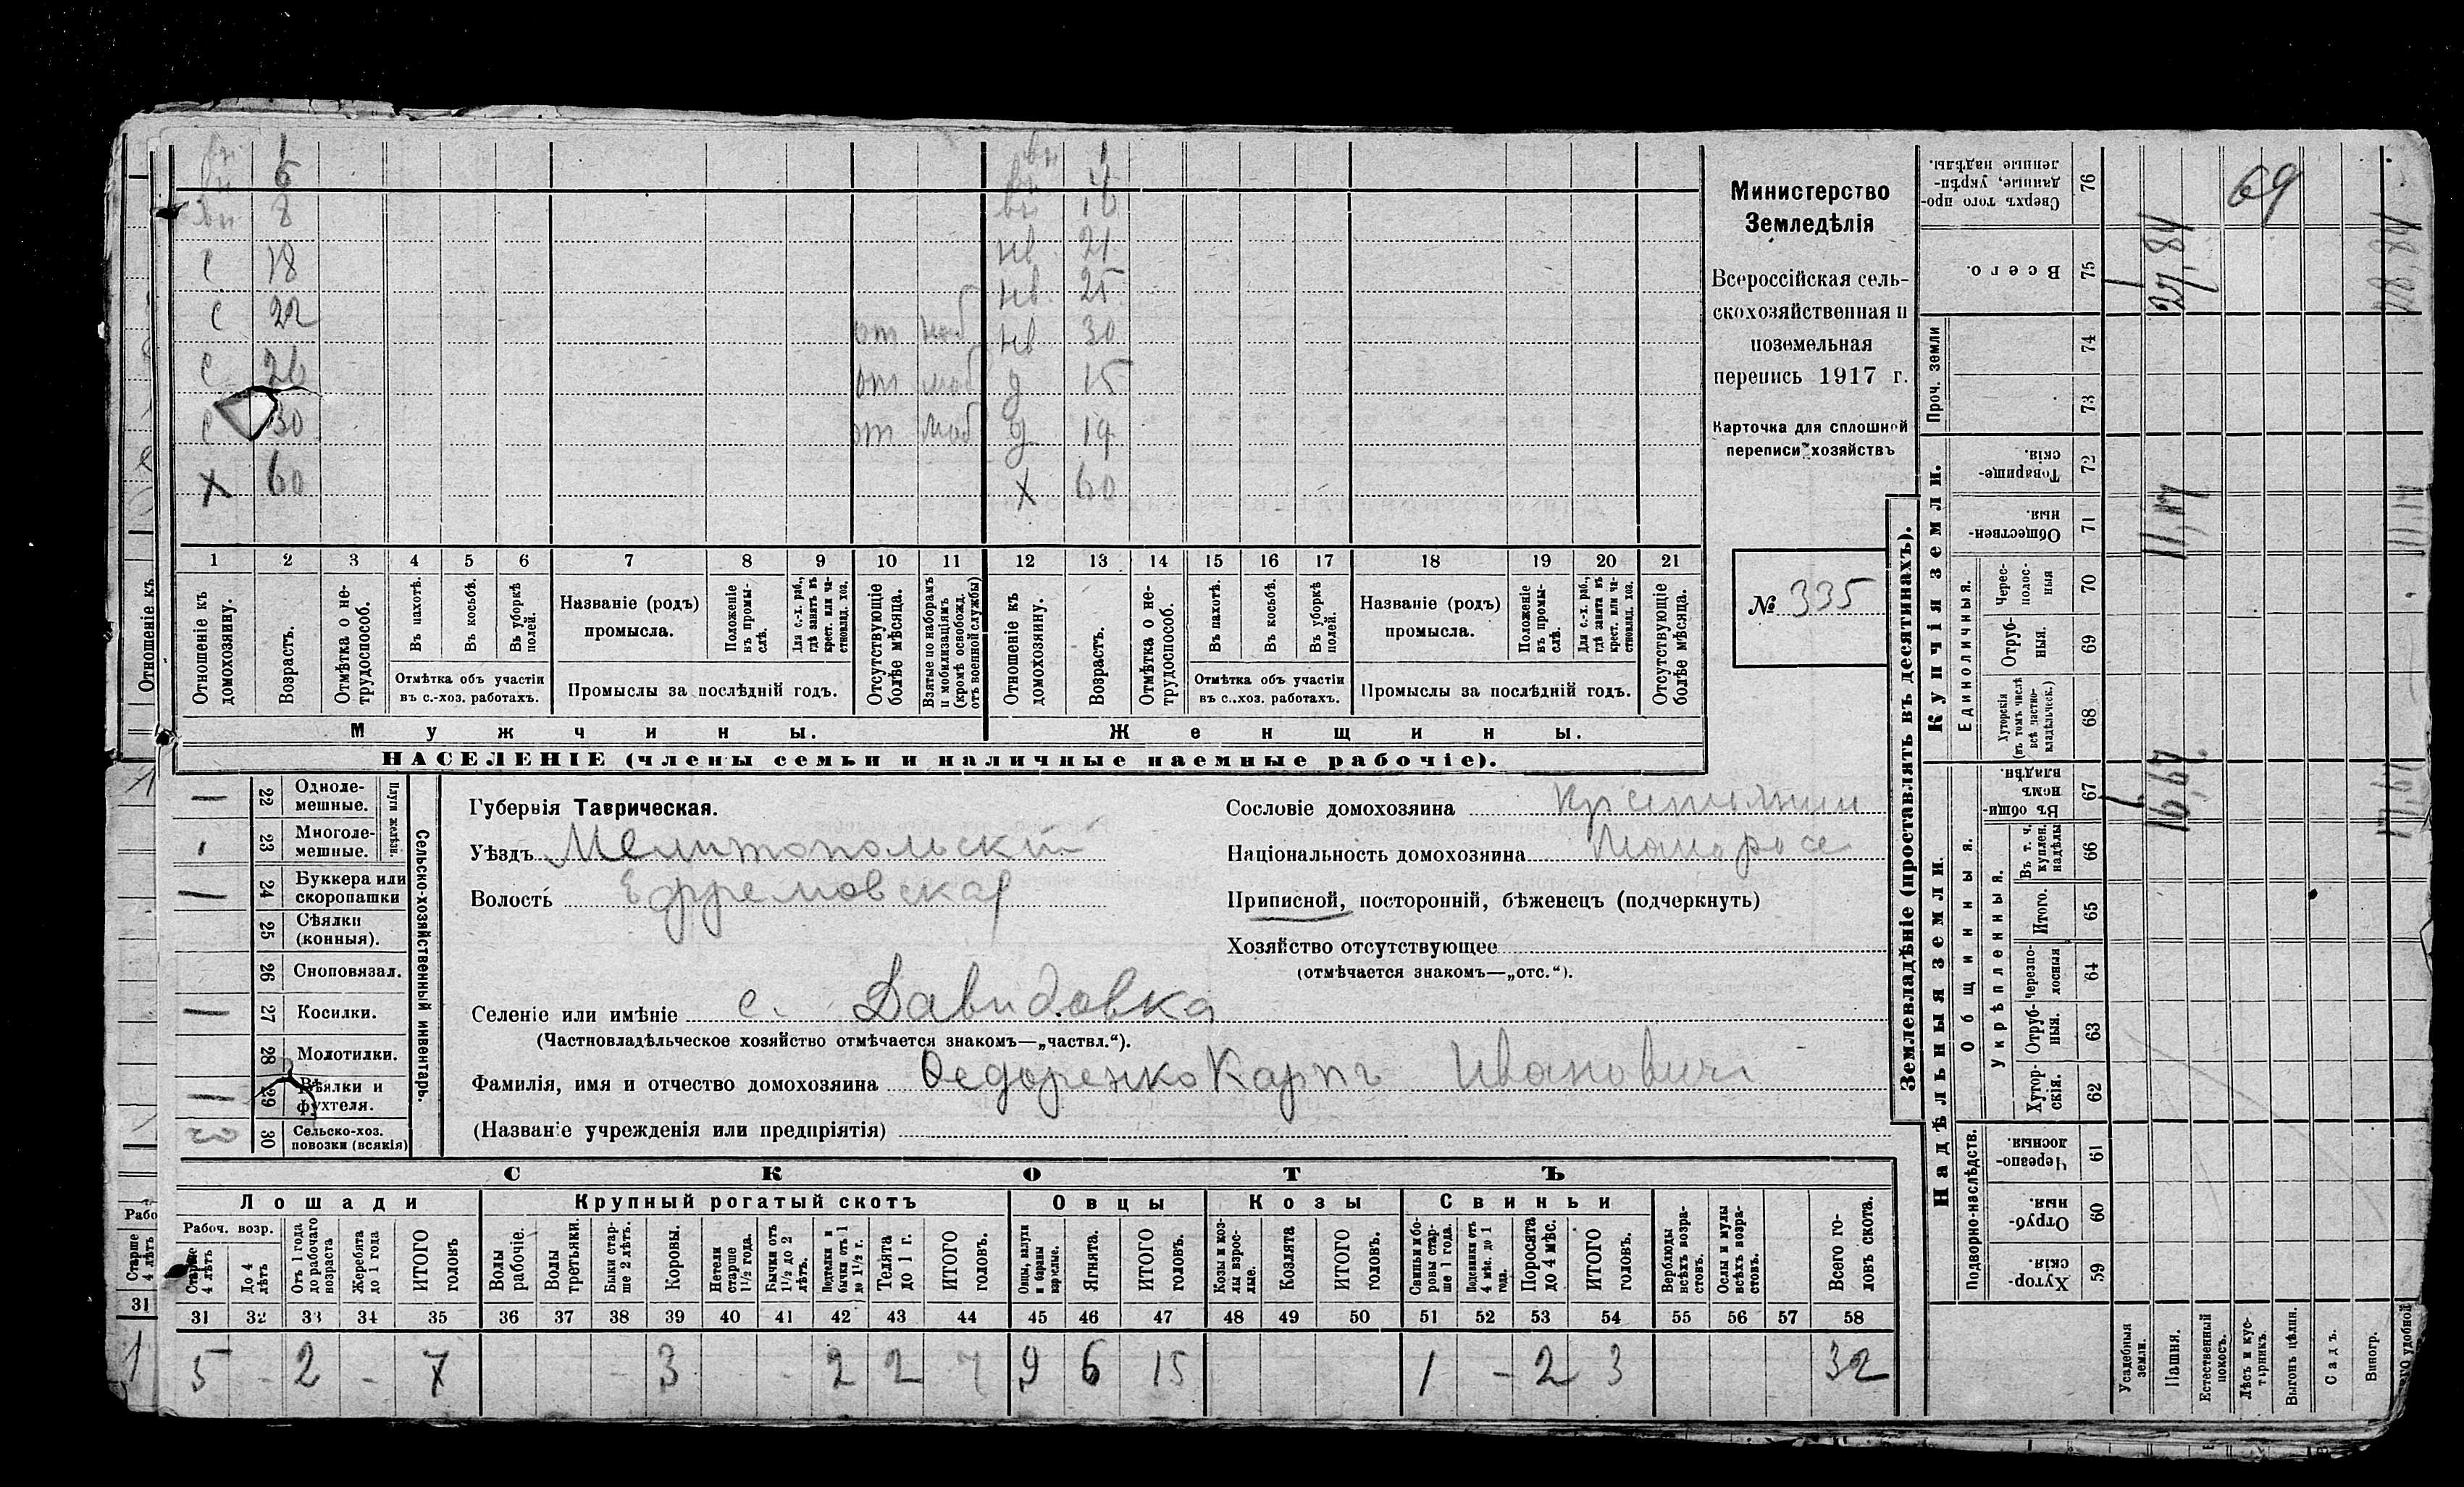 вн 6 вн 4
вн 8 вн 16
с 18 нв 21
с 22 нв 25
с 26 от моб нв 30
с 30 от моб д 15
от моб д 19
Х 60 Х 60
1 2 3 4 5 6 7 8 9 10 11 12 13 14 15 16 17 18 19 20 21
Отношеніе къ домохозяину.
Возрастъ.
Отмѣтка о нетрудоспособ.
Въ пахотѣ.
Въ косьбѣ.
Въ уборкѣ полей.
Отмѣтка объ участіи въ с.-хоз. работахъ.
Названіе (родъ) промысла.
Положеніе въ промыслѣ.
Для с.-х. раб., гдѣ занятъ въ крест. или частновлад. хоз.
Промыслы за послѣдній годъ.
Отсутствующіе болѣе мѣсяца.
Взятые по наборамъ и мобилизаціямъ (кромѣ освобожд. отъ военной службы)
Отношеніе къ домохозяину.
Возрастъ.
Отмѣтка о нетрудоспособ.
Въ пахотѣ.
Въ косьбѣ.
Въ уборкѣ полей.
Отмѣтка объ участіи въ с.-хоз. работахъ.
Названіе (родъ) промысла.
Положеніе въ промыслѣ.
Для с.-х. раб., гдѣ занята въ крест. или частновлад. хоз.
Промыслы за послѣдній годъ.
Отсутствующіе болѣе мѣсяца.
Мужчины. Женщины.
НАСЕЛЕНІЕ (члены семьи и наличные наемные рабочіе).
Министерство
Земледѣлія
Всероссійская сель-
скохозяйственная и
поземельная
перепись 1917 г.
Карточка для сплошной
переписи хозяйствъ
№ 335
22 Одноле-
мешные.
23 Многоле-
мешные.
Плуги желѣзн.
24 Буккера или
скоропашки
25 Сѣялки
(конныя).
26 Сноповязал.
27 Косилки.
28 Молотилки.
29 Вѣялки и
фухтеля.
30 Сельско-хоз.
повозки (всякія)
Сельско-хозяйственный инвентарь.
Губернія Таврическая.
Уѣздъ Мелитопольскій
Волость Ефремовская
Селеніе или имѣніе с. Давидовка
(Частновладѣльческое хозяйство отмѣчается знакомъ—„частвл.“).
Фамилія, имя и отчество домохозяина Федоренко Карпъ Ивановичъ
(Названіе учрежденія или предпріятія)
Сословіе домохозяина Крестьянин
Національность домохозяина Малоросс
Приписной, посторонній, бѣженецъ (подчеркнуть)
Хозяйство отсутствующее
(отмѣчается знакомъ—„отс.“).
СКОТЪ
Лошади Крупный рогатый скотъ Овцы Козы Свиньи
Рабоч. возр.
Старше 4 лѣтъ
До 4 лѣтъ
Отъ 1 года до рабочаго возраста
Жеребята до 1 года
ИТОГО головъ
Волы рабочіе.
Волы третьяки.
Быки старше 2 лѣтъ.
Коровы.
Нетели старше 1½ года.
Бычки отъ 1½ до 2 лѣтъ.
Подтелки и бычки отъ 1 до 1½ г.
Телята до 1 г.
ИТОГО головъ.
Овцы, валухи и бараны взрослые.
Ягнята.
ИТОГО головъ.
Козы и козлы взрослые.
Козлята
ИТОГО головъ.
Свиньи и боровы старше 1 года.
Подсвинки отъ 4 мѣс. до 1 года.
Поросята до 4 мѣс.
ИТОГО головъ.
Верблюды всѣхъ возрастовъ.
Ослы и мулы всѣхъ возрастовъ.
Всего головъ скота.
31 32 33 34 35 36 37 38 39 40 41 42 43 44 45 46 47 48 49 50 51 52 53 54 55 56 57 58
5 - 2 - 7 - 3 - 2 2 7 9 6 15 1 - 2 3 32
Землевладѣніе (проставлять въ десятинахъ).
Надѣльныя земли. Купчія земли. Проч. земли
Подворно-наслѣдств.
Общинныя.
Укрѣпленныя.
Единоличныя.
Хуторскія 59
Отрубныя. 60
Черезполосныя. 61
Хуторскія. 62
Отрубныя. 63
Черезполосныя 64
Итого. 65
Въ т. ч. куплен. надѣлы 66
Въ общинномъ владѣн. 67
Хуторскія (въ томъ числѣ всѣ частновладѣльческ.) 68
Отрубныя. 69
Чересполосныя 70
Общественныя. 71
Товарищескія. 72
73
74
Всего. 75
Сверхъ того проданные, укрѣпленные надѣлы. 76
Усадебныя земли. 1 1
Пашня. 16,67 11,17 27,84
Естественный покосъ.
Лѣсъ и кустарникъ.
Выгонъ цѣлин.
Садъ.
Виногр.
17,67 11,17 28,84
69
Отношеніе къ
Рабо
Старше 4 лѣтъ
31
1